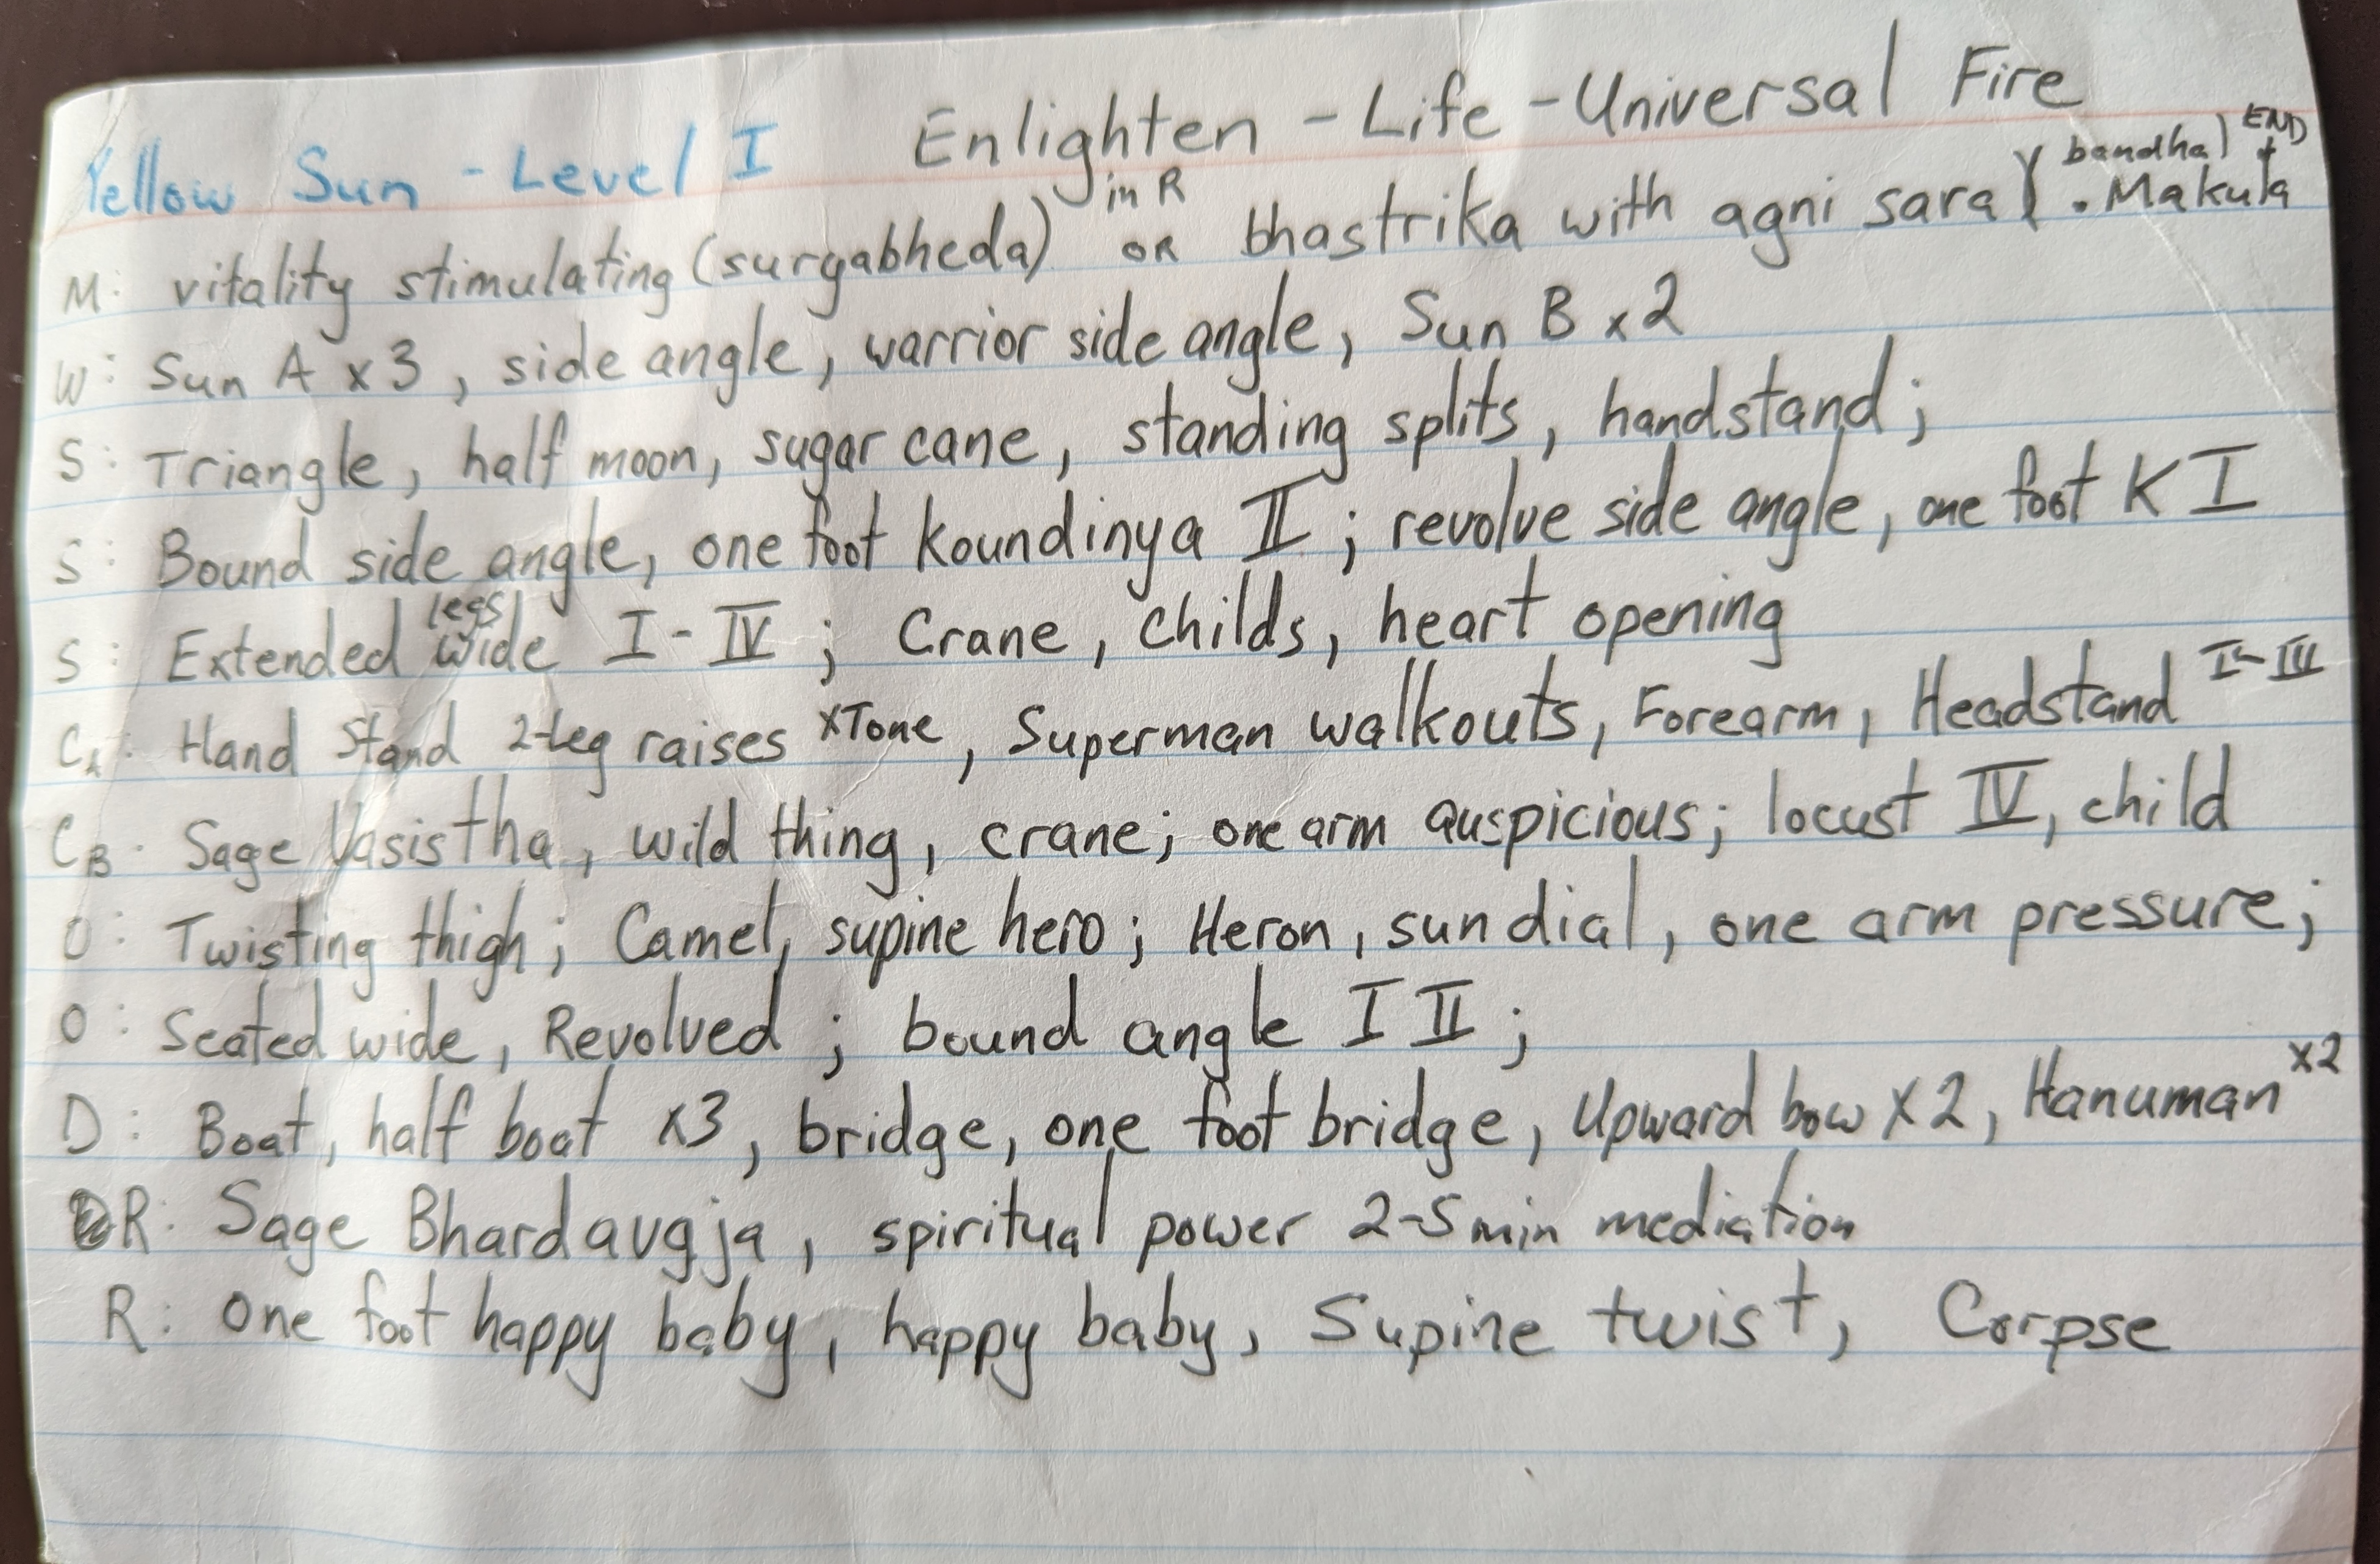 Yellow Sun - Level I Enlighten - Life - Universal Fire
M: vitality stimulating (suryabheda) in R OR bhastrika with agni sara } bandha) END + . Makula
W: Sun A x 3, side angle, warrior side angle, Sun B x2
S: Triangle, half moon, sugar cane, standing splits, handstand;
S: Bound side angle, one foot koundinya II; revolve side angle, one foot K I
S: Extended legs wide I - IV; Crane, childs, heart opening
CA: Hand Stand 2-leg raises xTone, Superman walkouts, Forearm, Headstand I-III
CB. Sage Vasistha, wild thing, crane; one arm auspicious; locust IV, child
O: Twisting thigh; Camel, supine hero; Heron, sundial, one arm pressure;
O: Seated wide, Revolved; bound angle I II;
D: Boat, half boat x3, bridge, one foot bridge, Upward bow x2, Hanuman x2
R: Sage Bhardavgja, spiritual power 2-5 min mediation
R: One foot happy baby, happy baby, Supine twist, Corpse